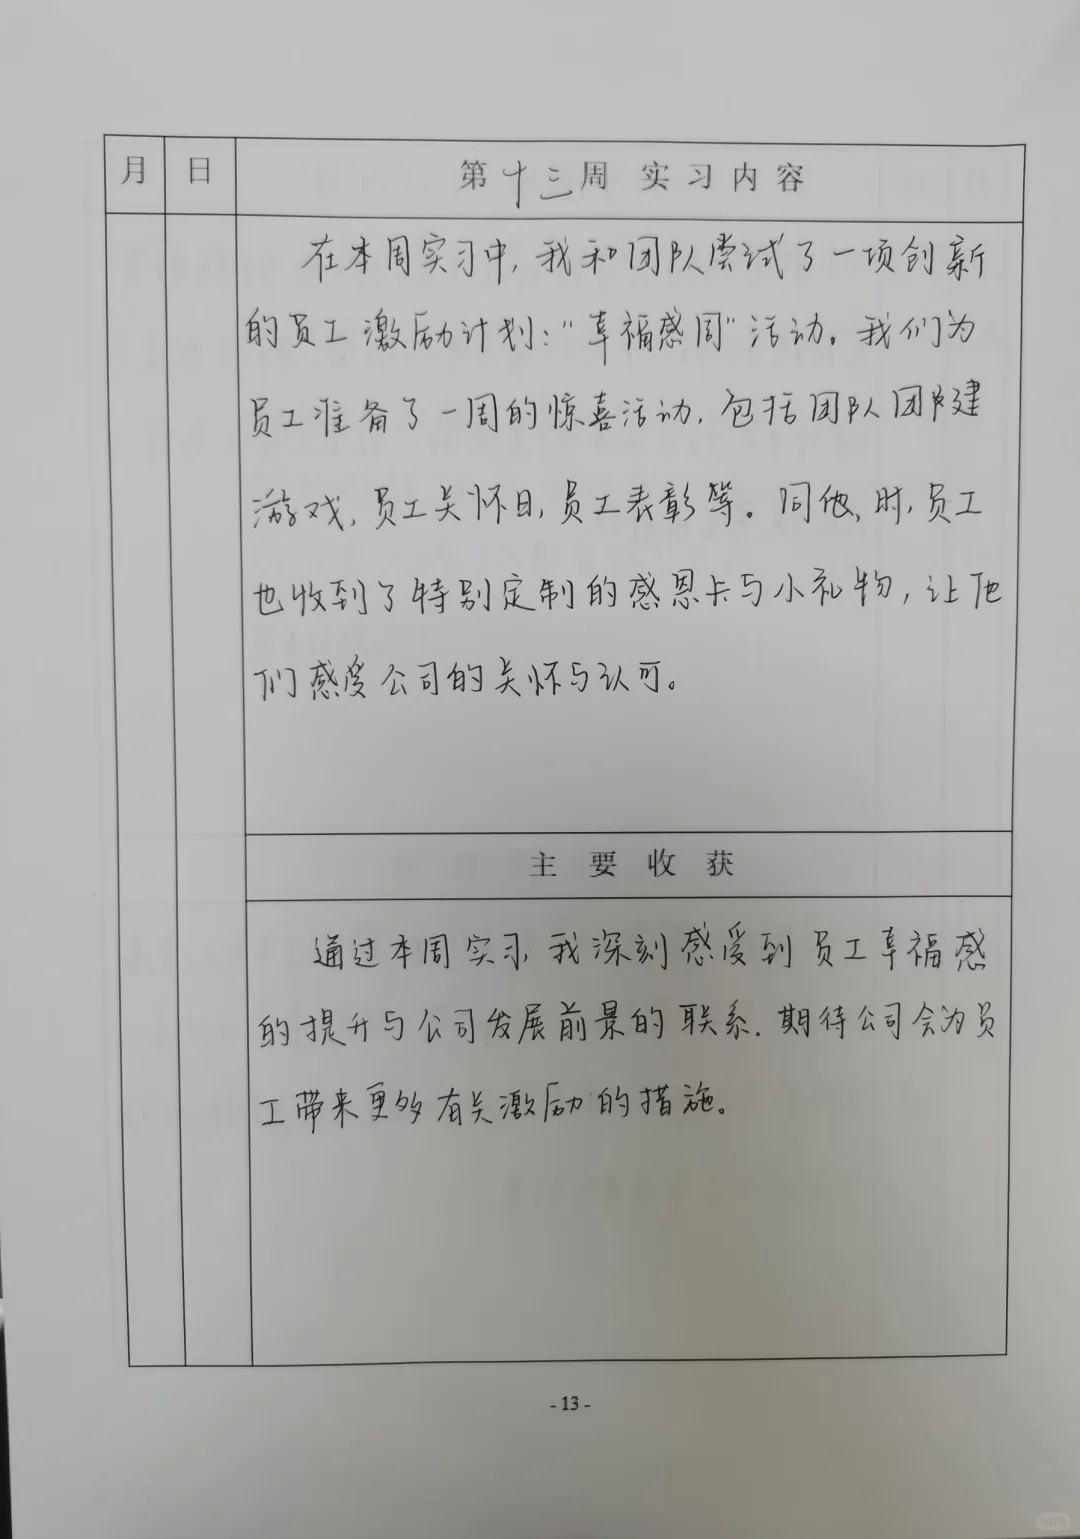 月 日 第十三周 实习内容
在本周实习中,我和团队尝试了一项创新
的员工激励计划:“幸福感周”活动。我们为
员工准备了一周的惊喜活动,包括团队团队建
游戏,员工关怀日,员工表彰等。同他,时,员工
也收到了特别定制的感恩卡与小礼物,让他
们感受公司的关怀与认可。
主要收获
通过本周实习,我深刻感受到员工幸福感
的提升与公司发展前景的联系.期待公司会为员
工带来更多有关激励的措施。
- 13 -